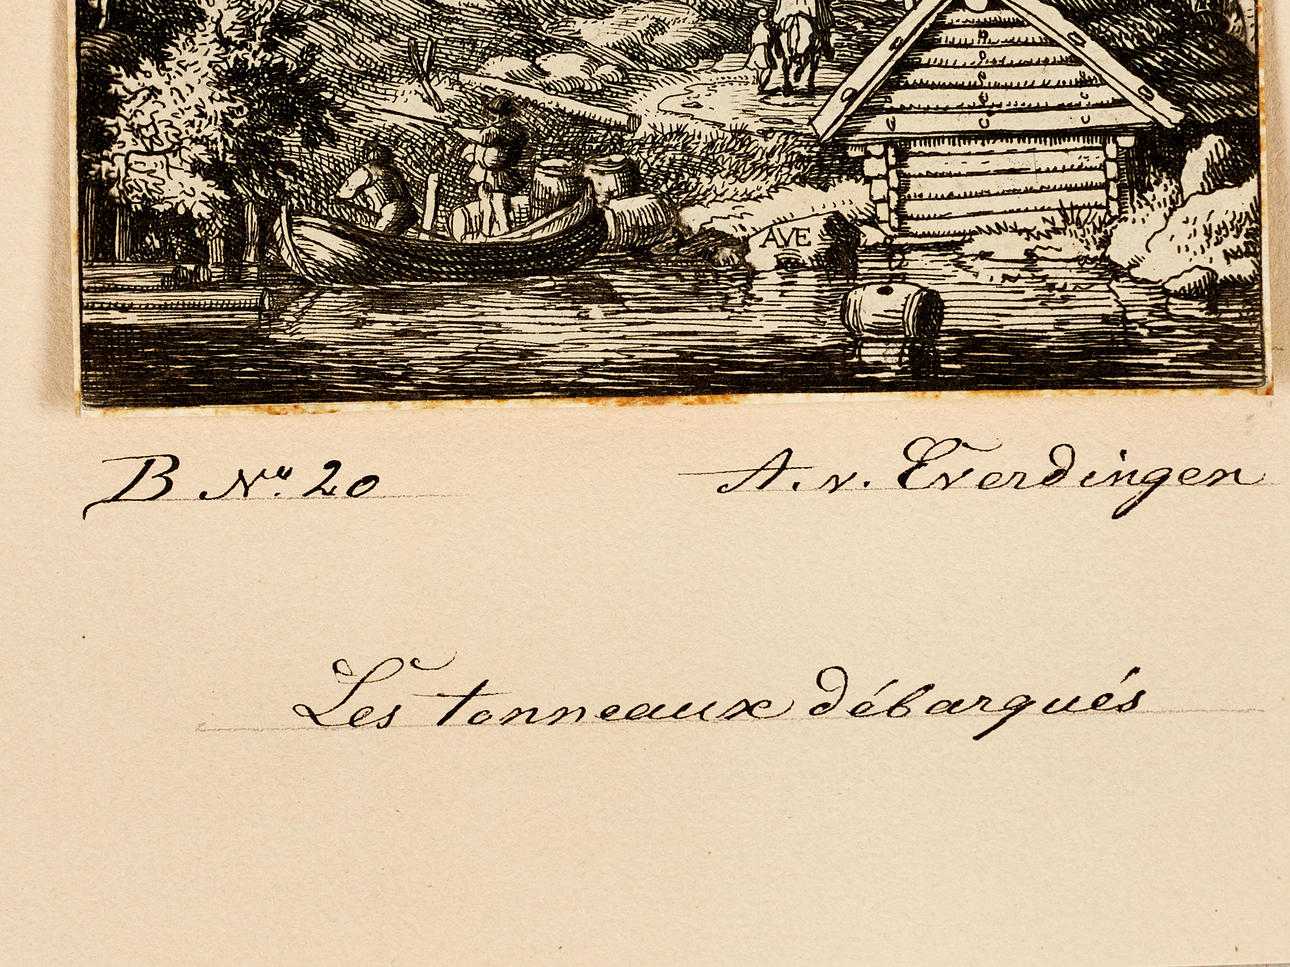 AVE
B No. 20 A. v. Everdingen
Les tonneaux débarqués